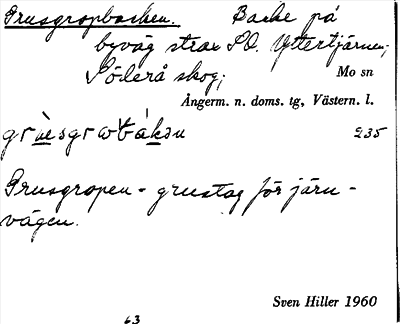 Grusgropbacken. Backe på
byväg strax SO. Yttertjärnen;
Söderå skog; Mo sn
Ångerm. n. doms. tg, Västern. l.
235
Grusgropen - grustag för järn-
vägen.
Sven Hiller 1960
63